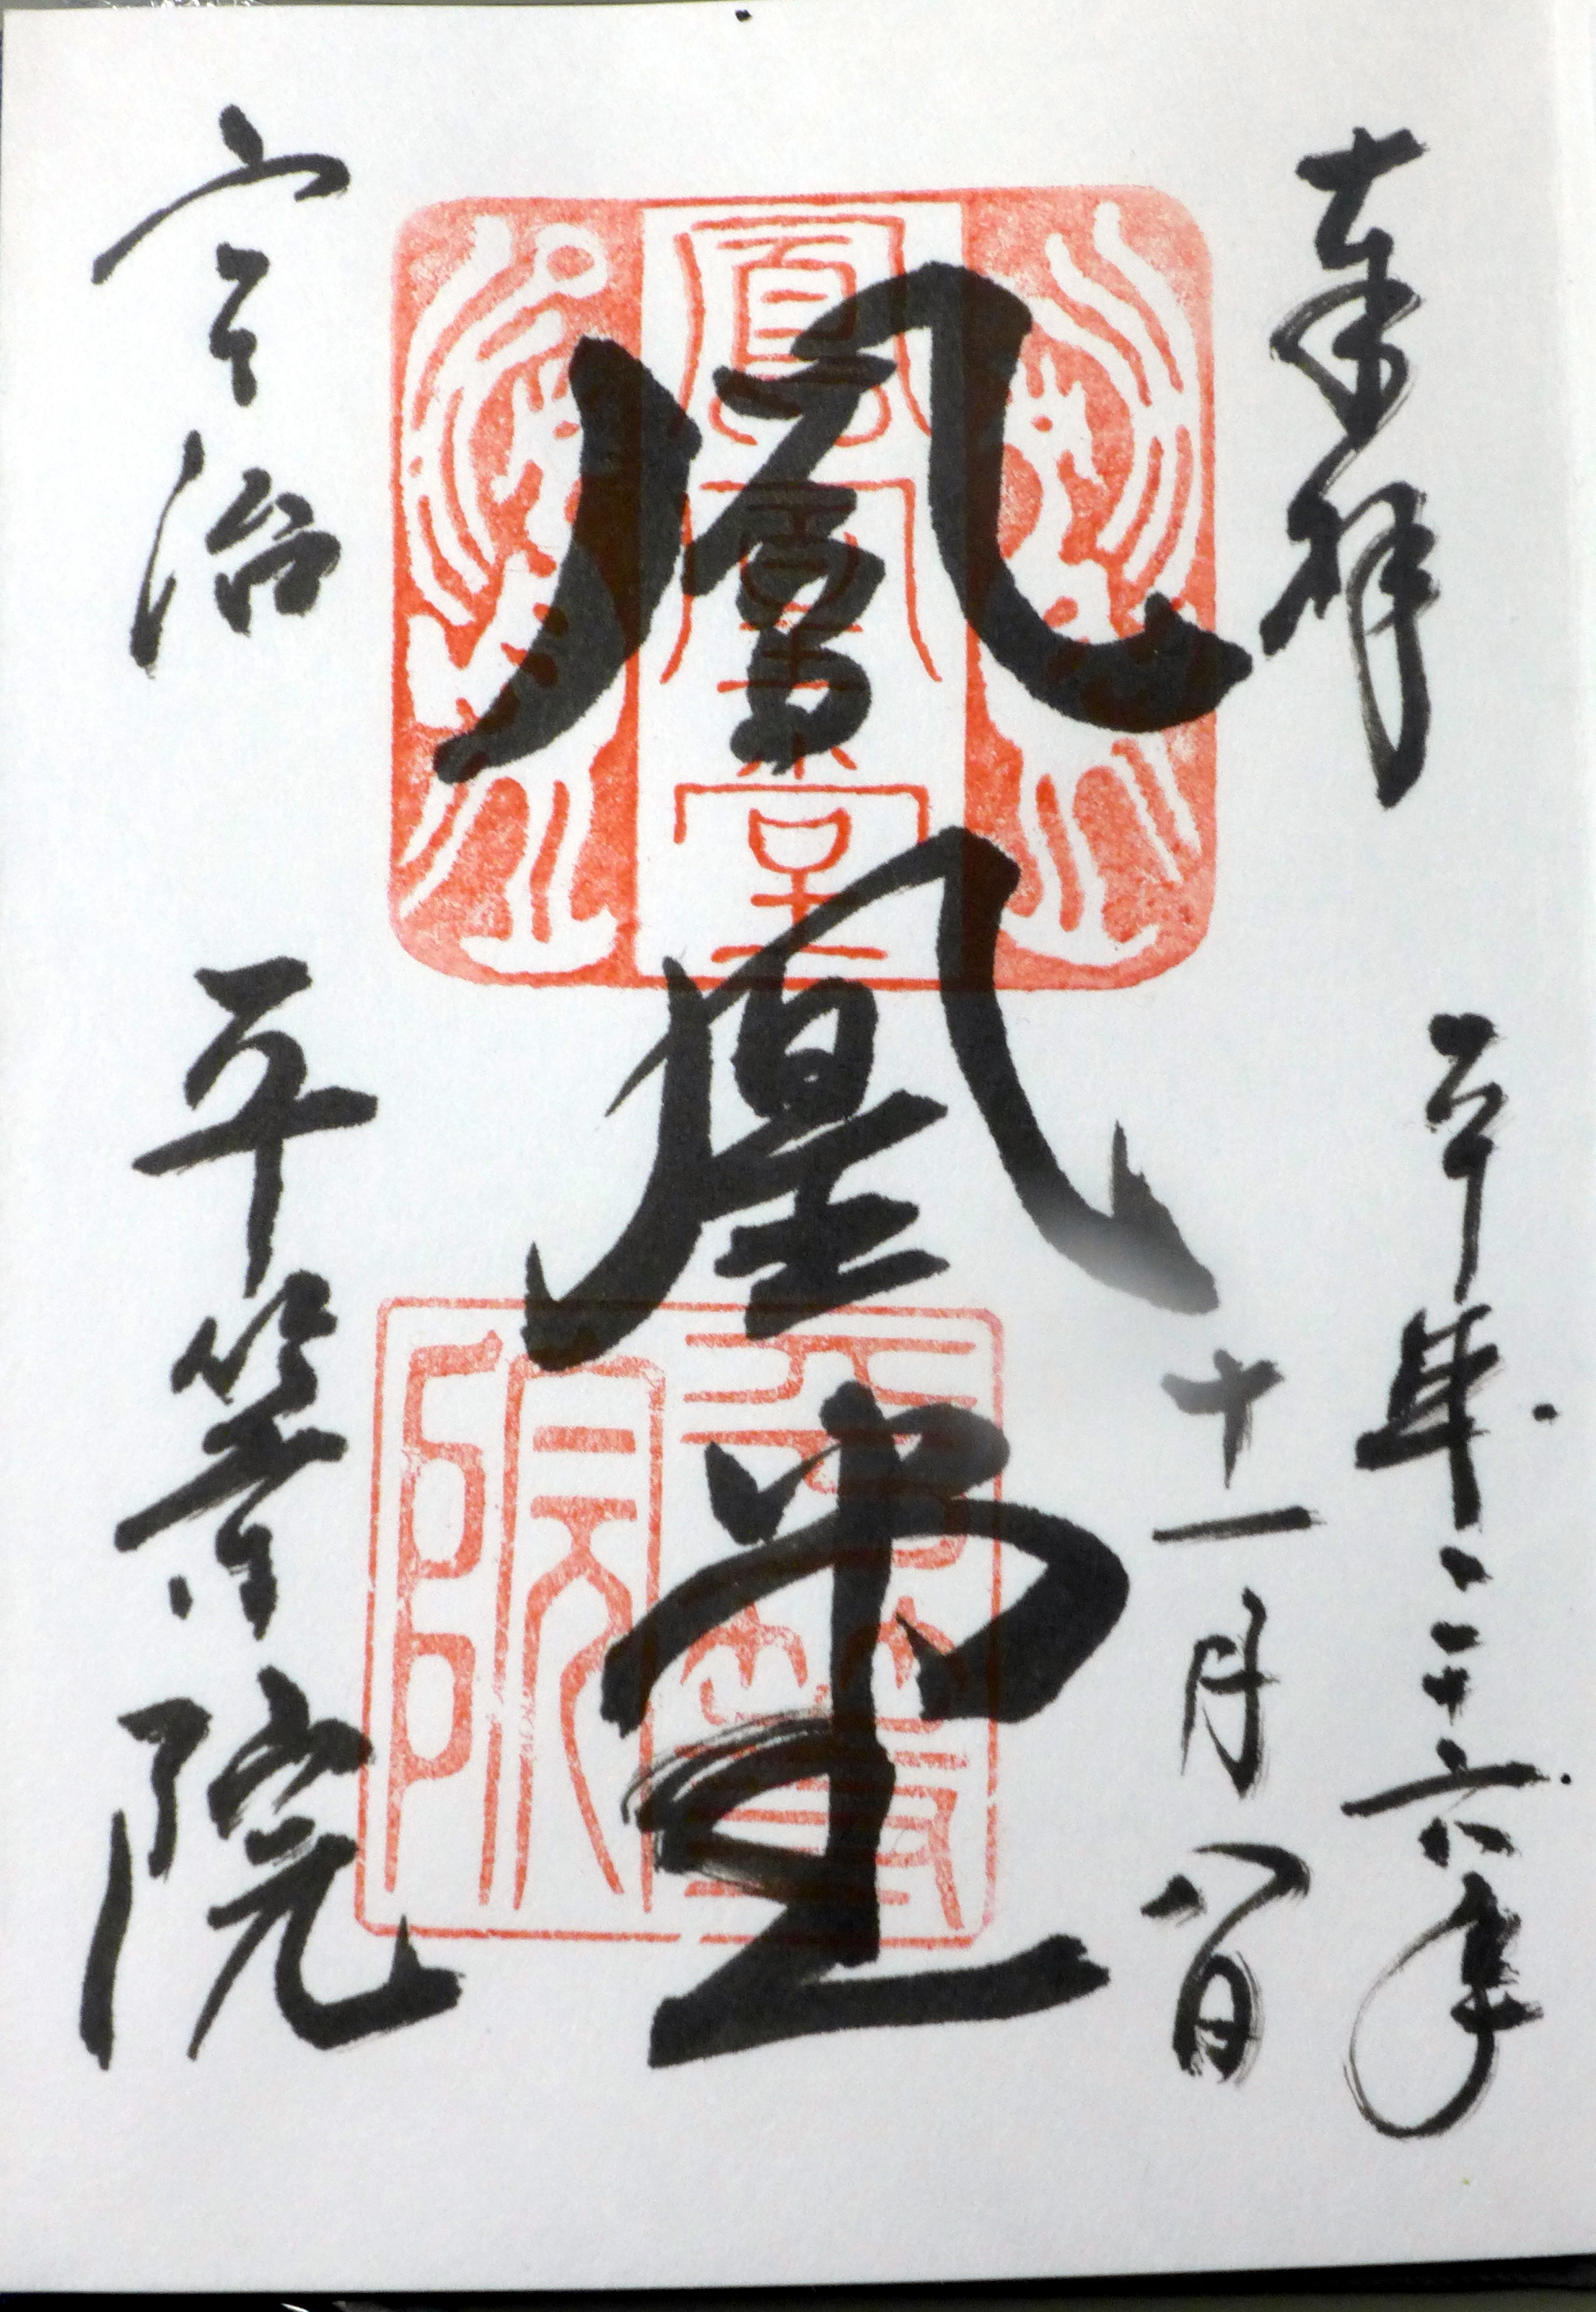 奉拝
平成二十六年
十一月八日
鳳凰堂
宇治 平等院
鳳凰堂
平等院